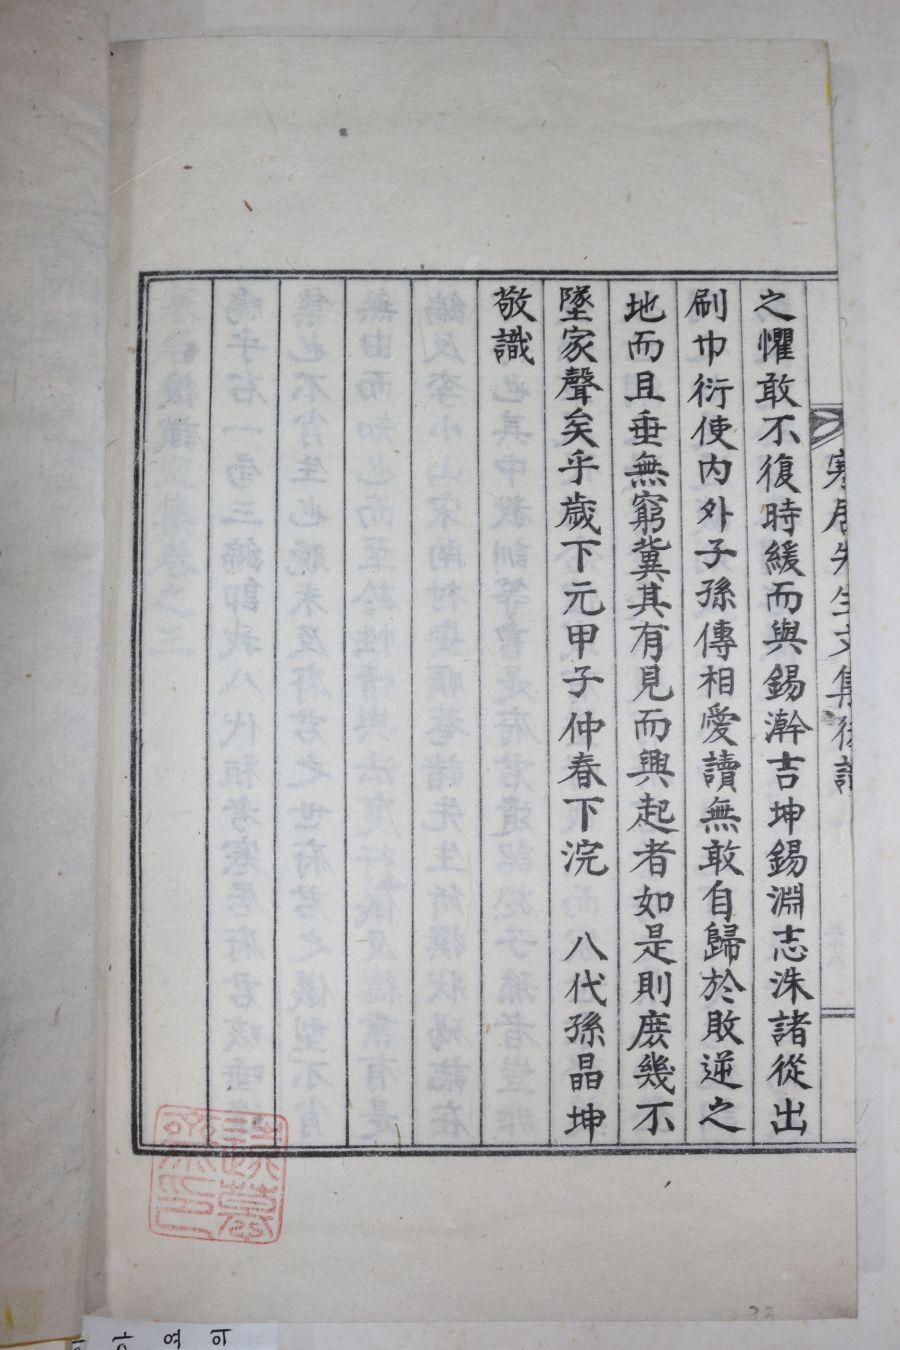 寒居先生文集後識
之懼敢不復時緩而與錫瀚吉坤錫淵志洙諸從出
刷巾衍使內外子孫傳相愛讀無敢自歸於敗逆之
地而且垂無窮冀其有見而興起者如是則庶幾不
墜家聲矣乎歲下元甲子仲春下浣 八代孫晶坤
敬識